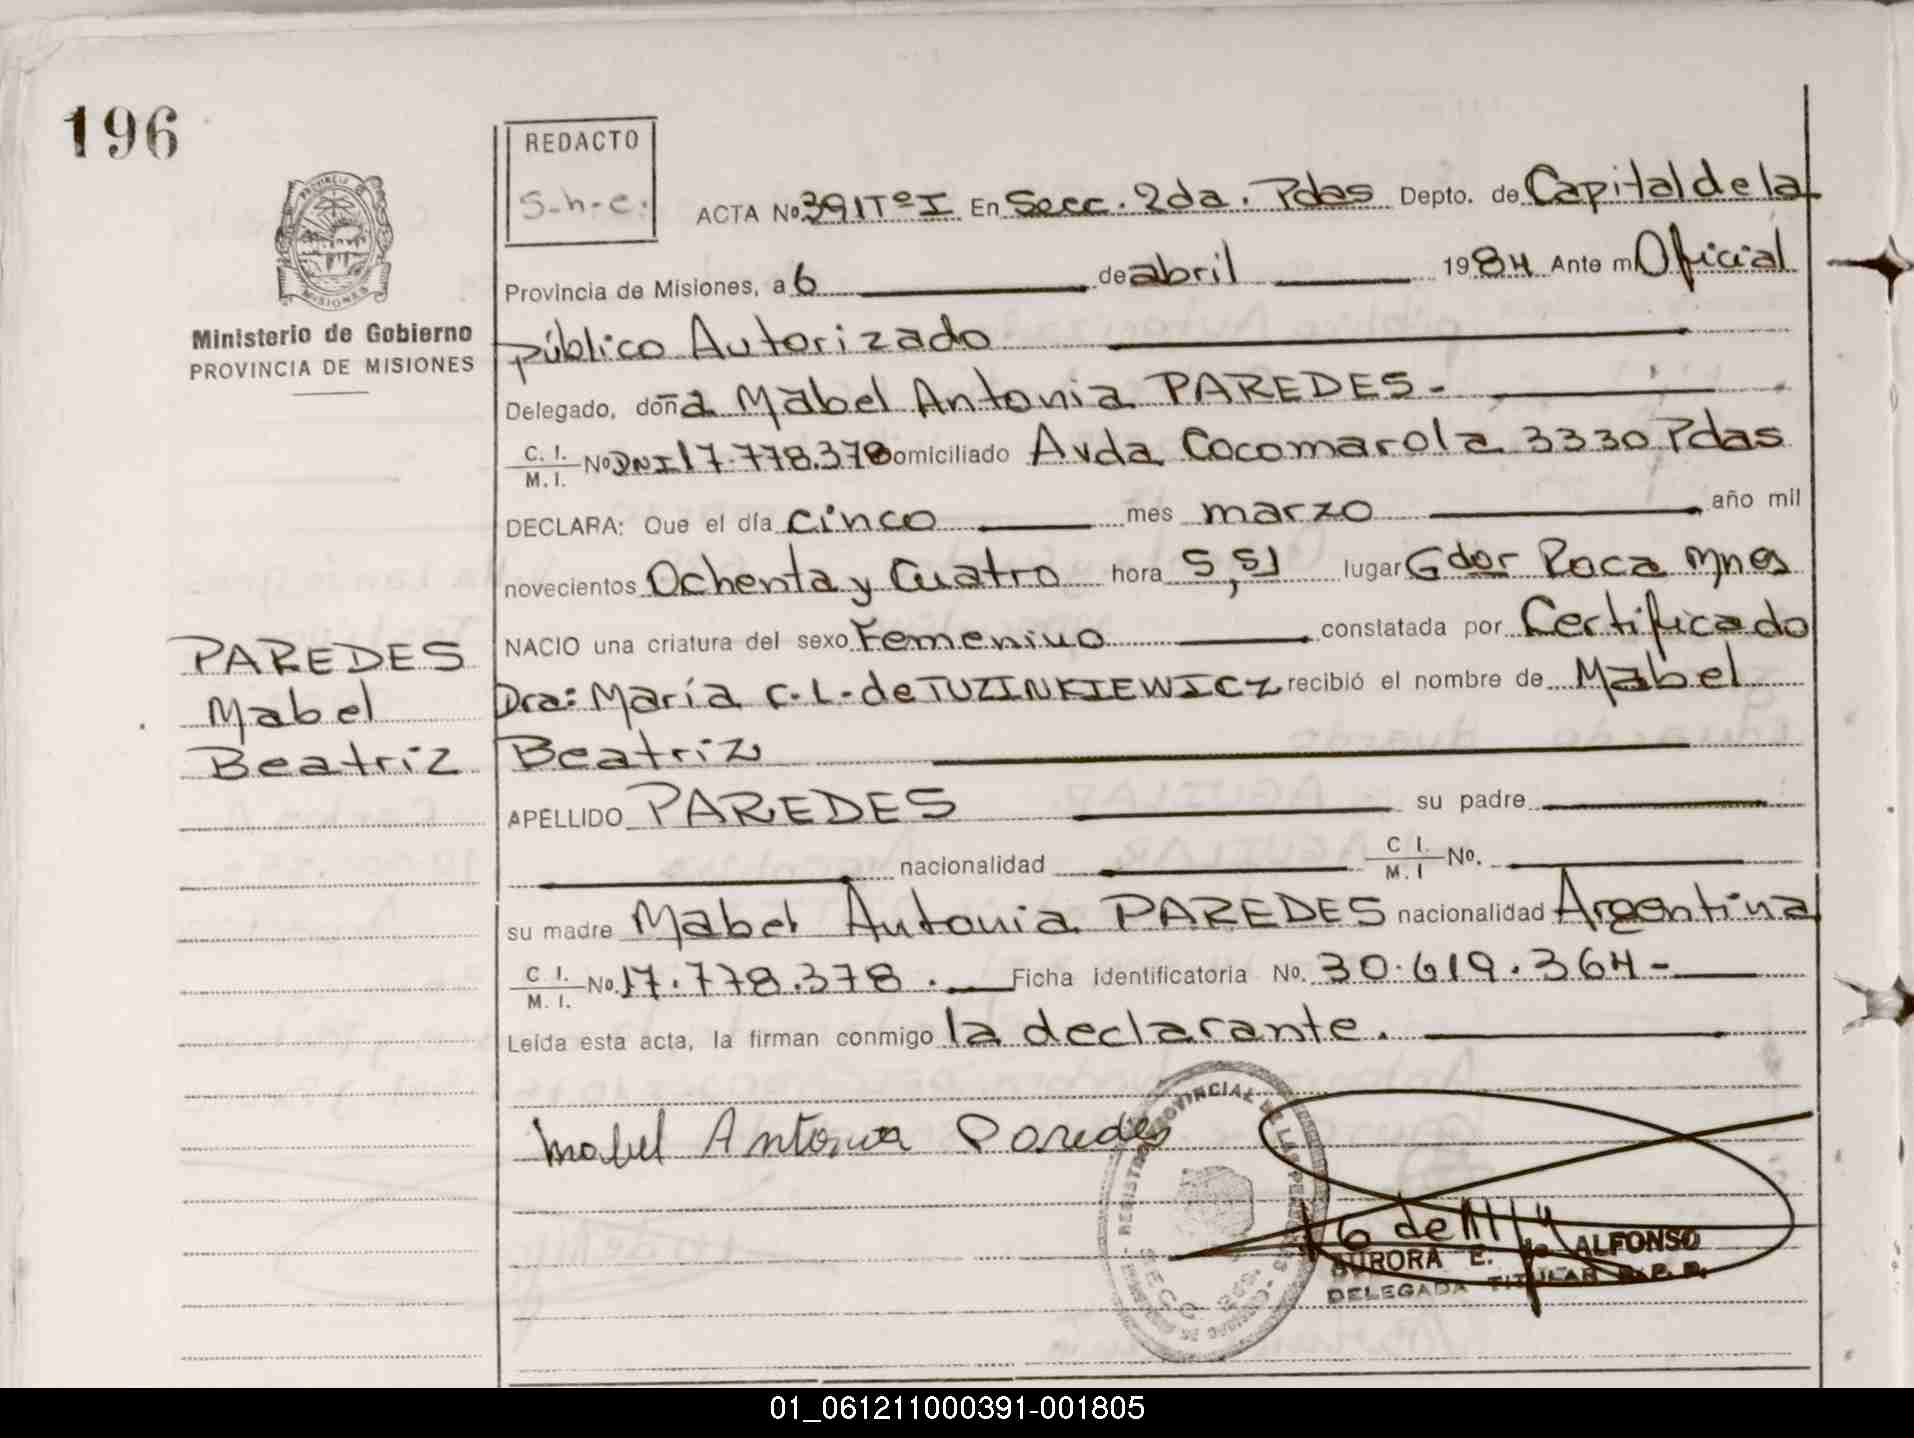 196
REDACTO
S-h-e.
ACTA No 391 Tº I En Secc. 2da. Pdas Depto. de Capital de la
Provincia de Misiones, a 6 de abril 1984 Ante mi Oficial
Ministerio de Gobierno
PROVINCIA DE MISIONES
público Autorizado
Delegado, doña Mabel Antonia PAREDES.-
C. I. M. I. No DNI 17.778.378 omiciliado Avda Cocomarola 3330 Pdas
DECLARA: Que el día cinco mes marzo año mil
novecientos Ochenta y Cuatro hora 5,51 lugar Gdor Roca Mnes
NACIO una criatura del sexo Femenino constatada por Certificado
PAREDES
Mabel
Beatriz
Dra: María C.L. de TUZINKIEWICZ recibió el nombre de Mabel
Beatriz
APELLIDO PAREDES su padre
nacionalidad C I. M. I No.
su madre Mabel Antonia PAREDES nacionalidad Argentina
C I. M. I. No. 17.778.378. Ficha identificatoria No. 30.619.364-
Leída esta acta, la firman conmigo la declarante.
Mabel Antonia Paredes
REGISTRO PROVINCIAL DE LAS PERSONAS
AURORA E. de ALFONSO
DELEGADA TITULAR R.P.P.
01_061211000391-001805